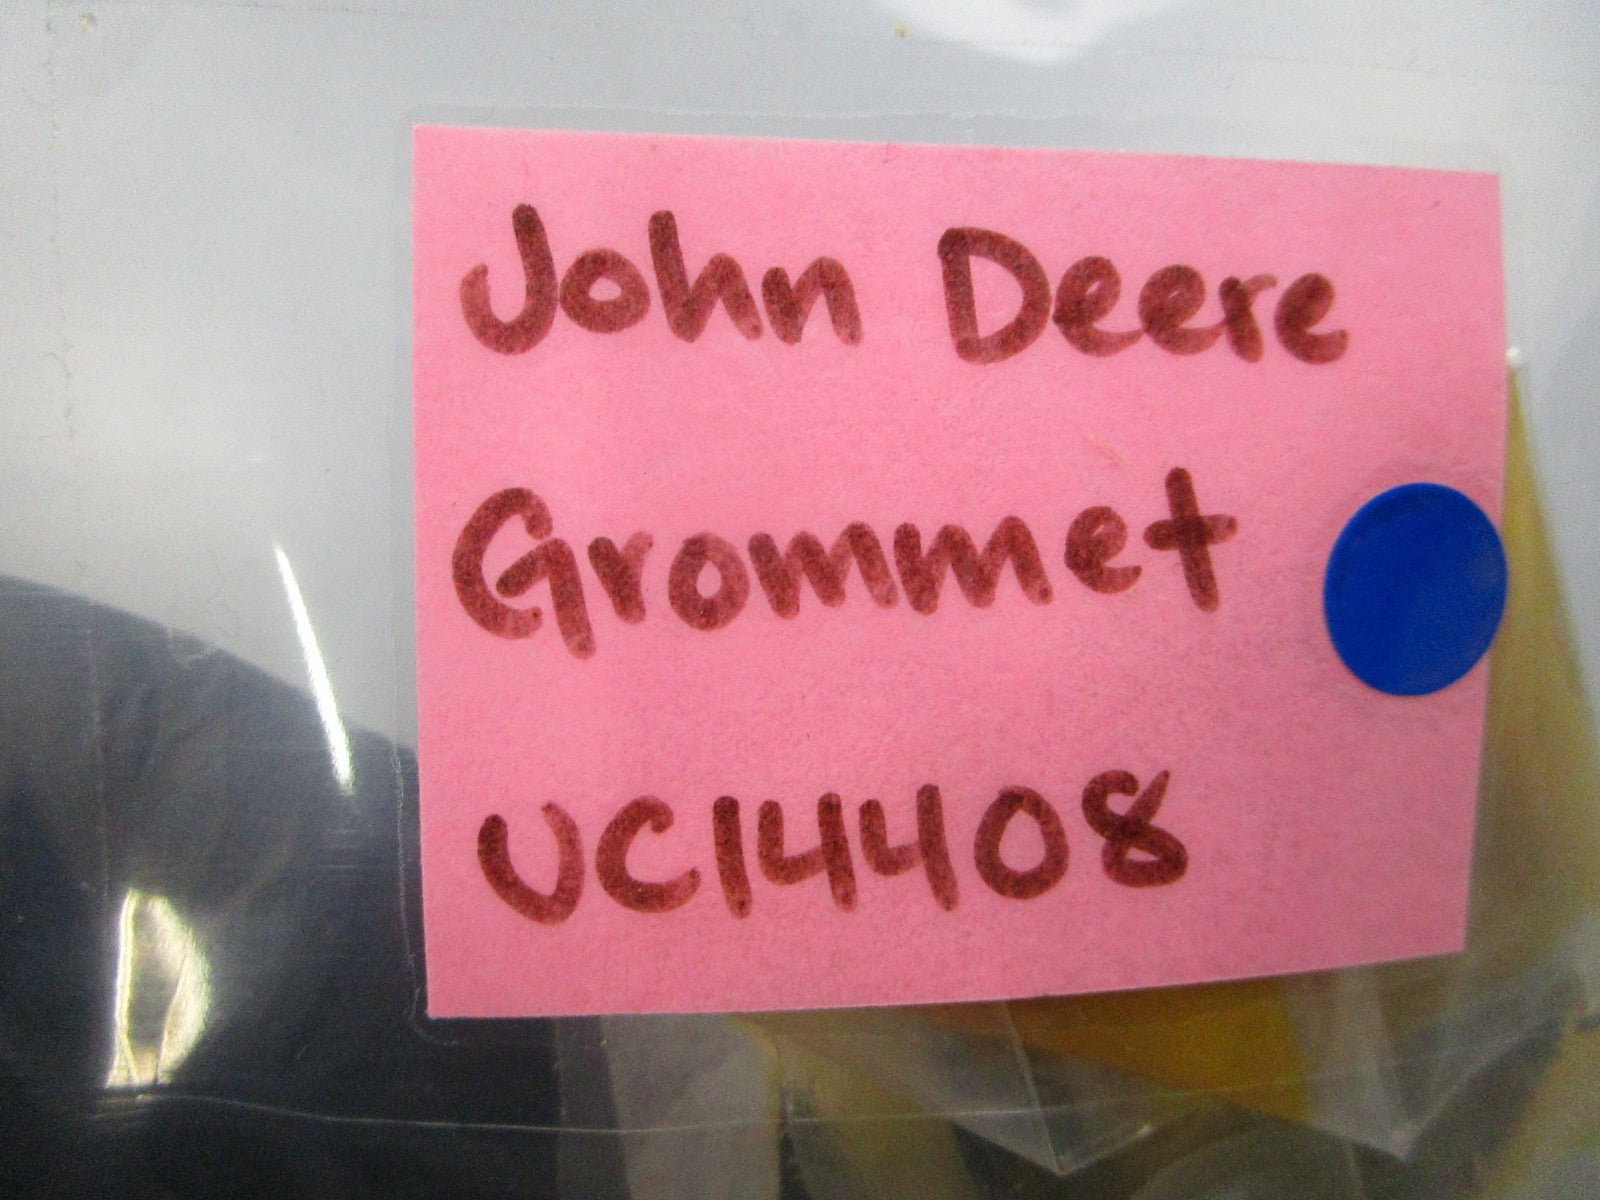 John Deere
Grommet
UC14408